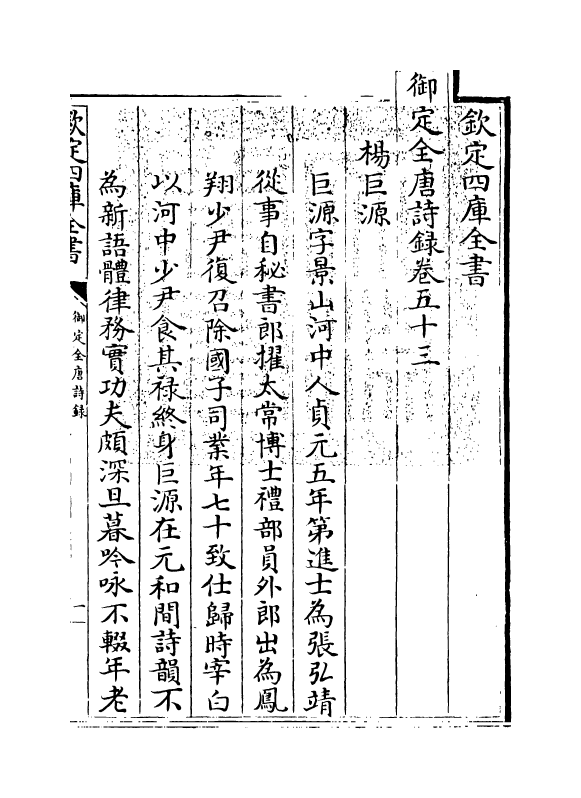 欽定四庫全書
御定全唐詩録卷五十三
楊巨源
巨源字景山河中人貞元五年第進士為張弘靖
從事自秘書郎擢太常博士禮部員外郎出為鳳
翔少尹復召除國子司業年七十致仕歸時宰白
以河中少尹食其禄終身巨源在元和間詩韻不
為新語體律務實功夫頗深旦暮吟咏不輟年老
欽定四庫全書
御定全唐詩録
一